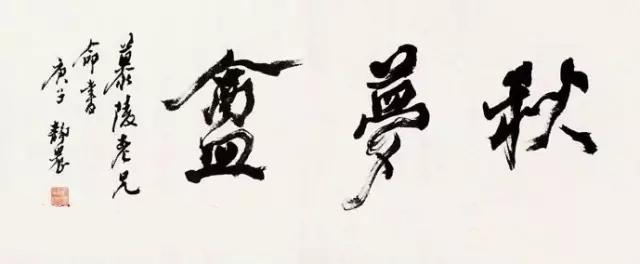 秋夢盦
慕陵老兄
命書
庚子 靜農